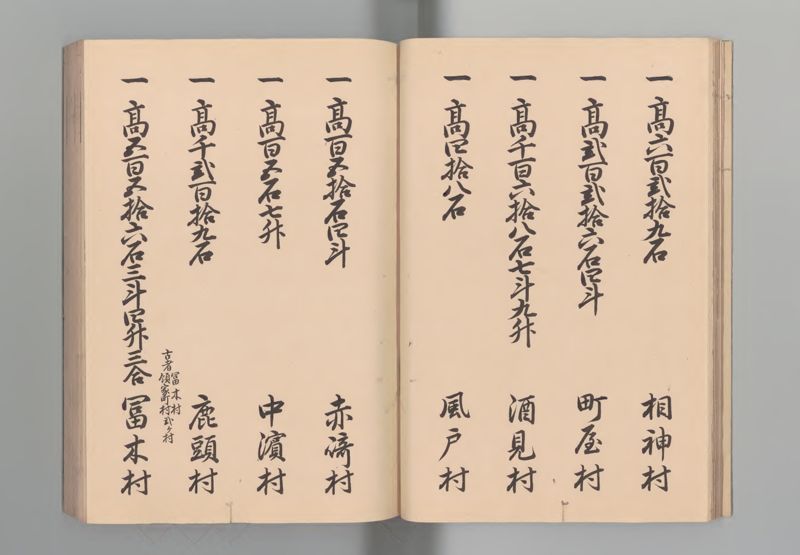 一 高六百弐拾九石 相神村
一 高弐百弐拾六石四斗 町屋村
一 高千百六拾八石七斗九升 酒見村
一 高四拾八石 風戸村
一 高百五拾石四斗 赤﨑村
一 高百五石七升 中濱村
一 高千弐百拾九石 鹿頭村
古者 冨木村
領家町村 弐ヶ村
一 高五百五拾六石三斗四升三合 冨木村